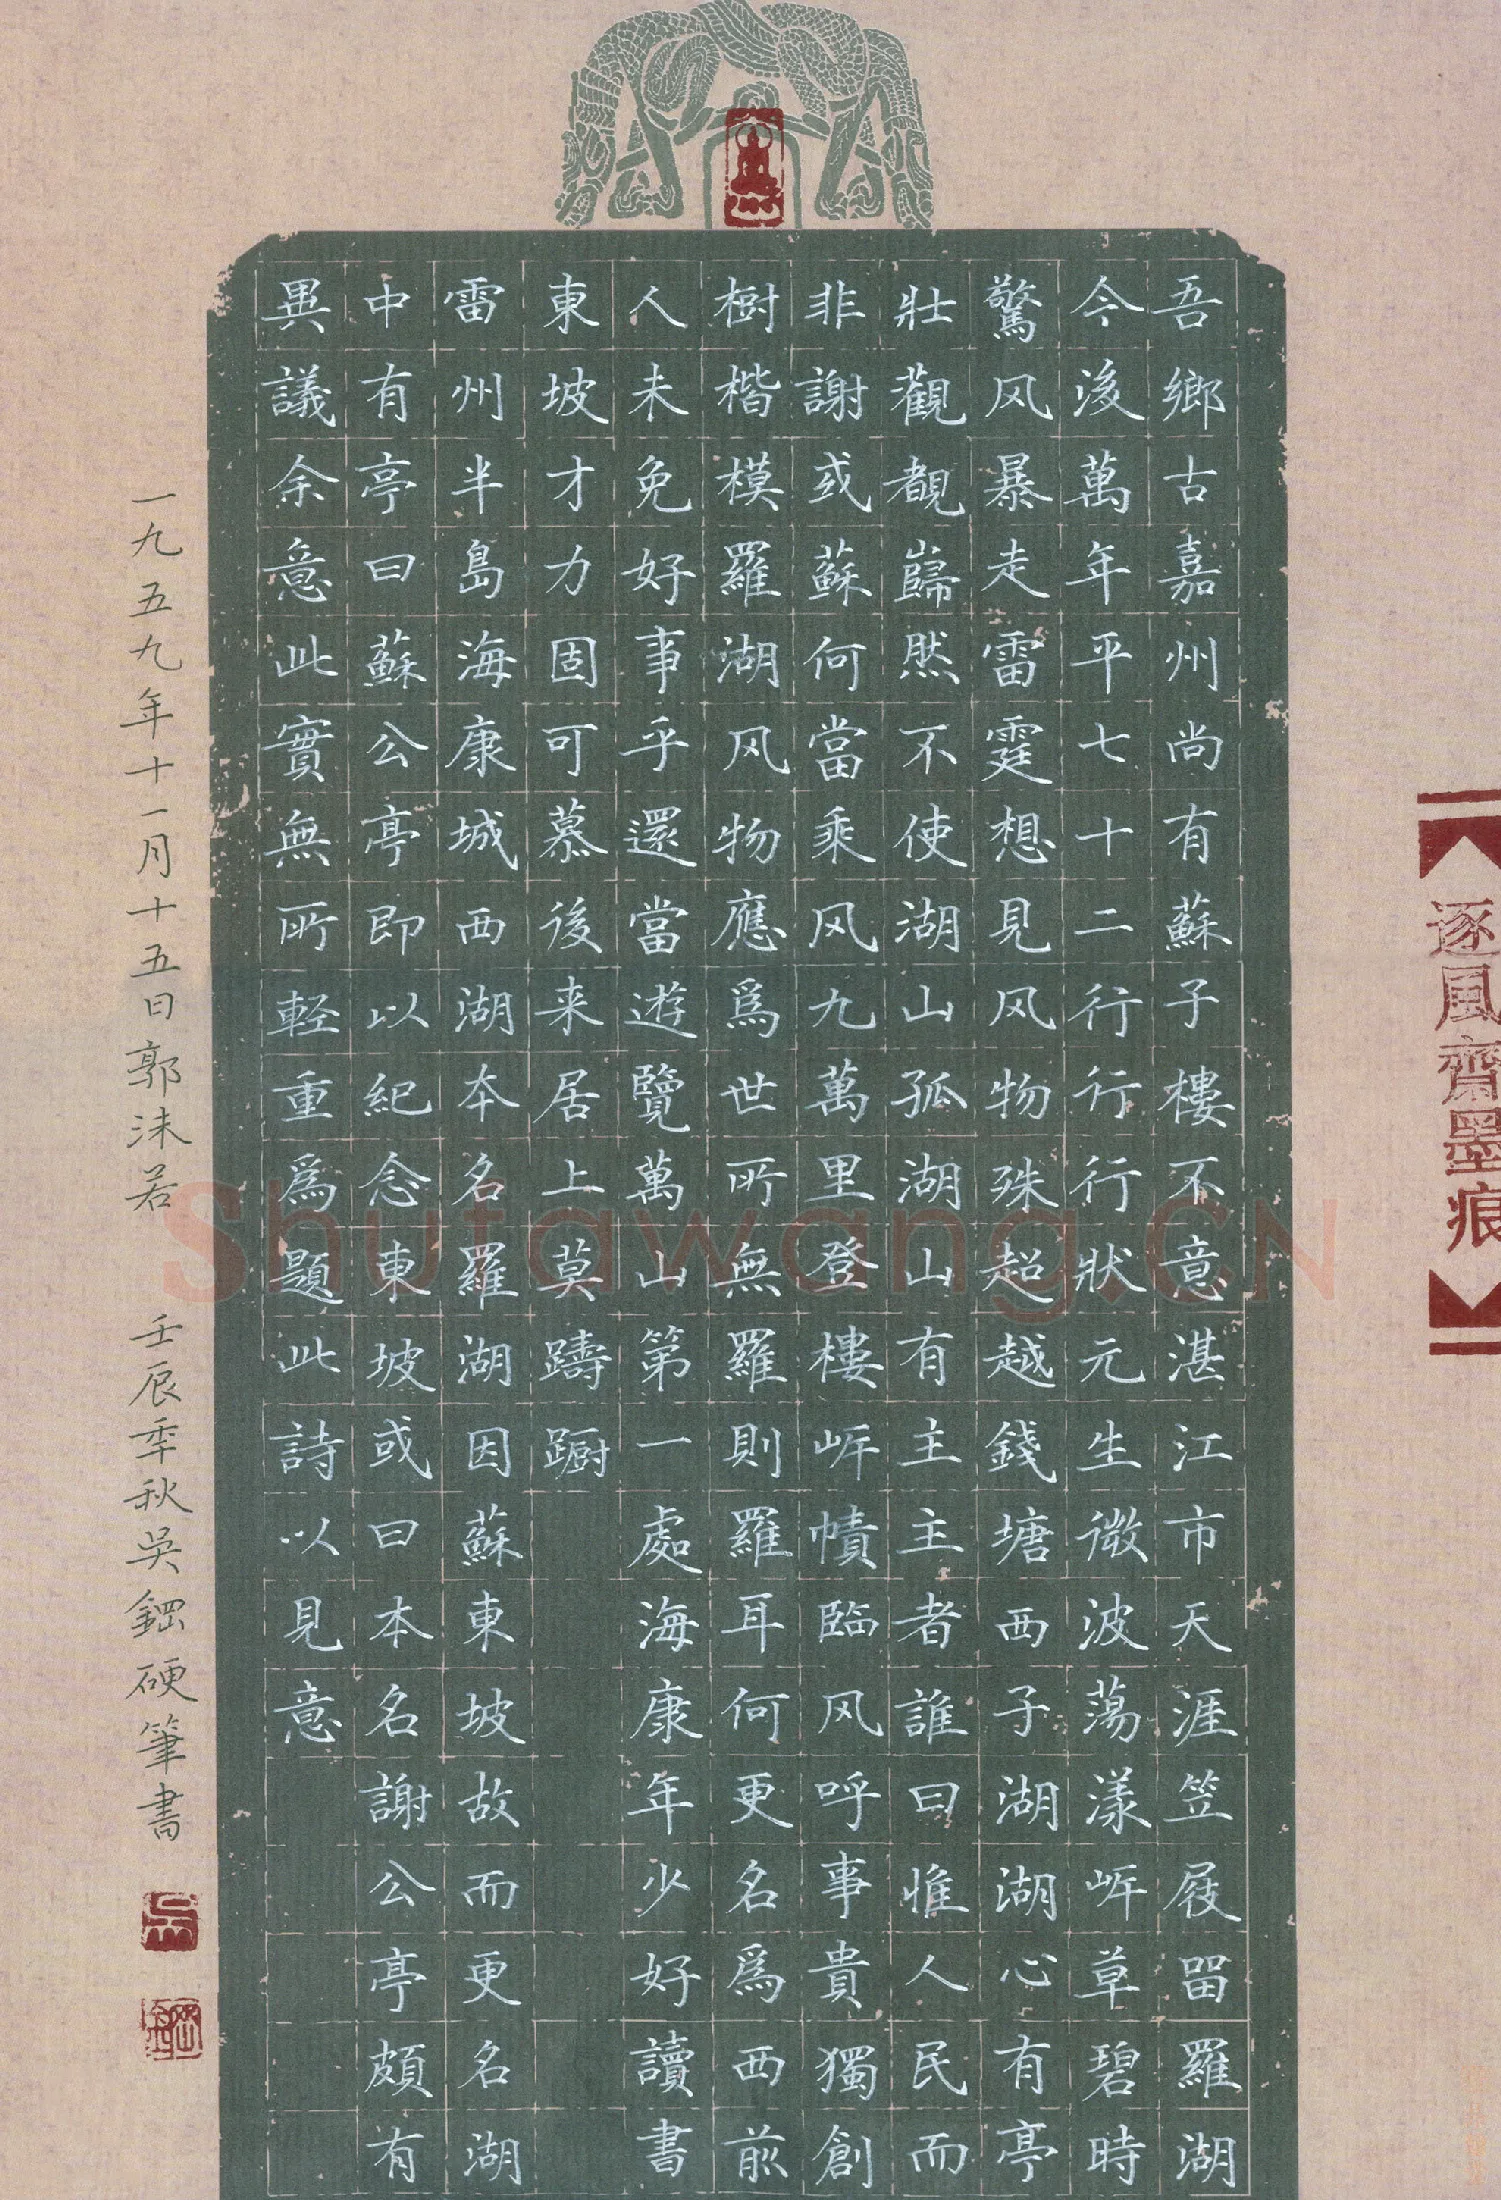 逐風齋墨痕
吾鄉古嘉州尚有蘇子樓不意湛江市天涯笠屐留羅湖
今後萬年平七十二行行行狀元生微波蕩漾岍草碧時
驚风暴走雷霆想見风物殊超越錢塘西子湖湖心有亭
壯觀覩巋然不使湖山孤湖山有主主者誰曰惟人民而
非謝或蘇何當乘风九萬里登樓岍幘臨风呼事貴獨創
樹楷模羅湖风物應爲世所無羅則羅耳何更名爲西前
人未免好事乎還當遊覽萬山第一處海康年少好讀書
東坡才力固可慕後来居上莫躊蹰
雷州半島海康城西湖本名羅湖因蘇東坡故而更名湖
中有亭曰蘇公亭即以紀念東坡或曰本名謝公亭頗有
異議余意此實無所輕重爲題此詩以見意
一九五九年十一月十五日郭沫若 壬辰季秋吳鋼硬筆書
吴
鋼
Shutawang.CN